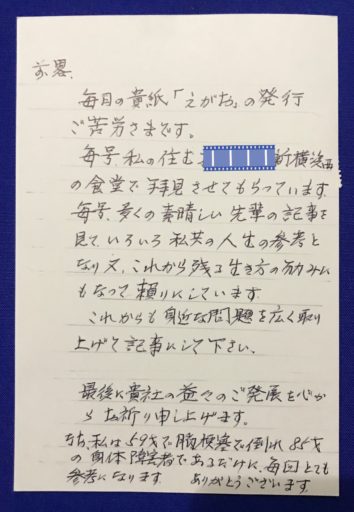 前略、
毎月の貴紙「えがお」の発行
ご苦労さまです。
毎号私の住む 新横浜
の食堂で拝見させてもらっています
毎号、多くの素晴しい先輩の記事を
見て、いろいろ私共の人生の参考と
なり又、これから残る生き方の励みに
もなって頼りにしています
これからも身近な問題を広く取り
上げて記事にして下さい、
最後に貴社の益々のご発展を心か
らお祈り申し上げます。
なお、私は59才で脳梗塞で倒れ85才
の身体障害者であるだけに、毎回とても
参考になります ありがとうございます、